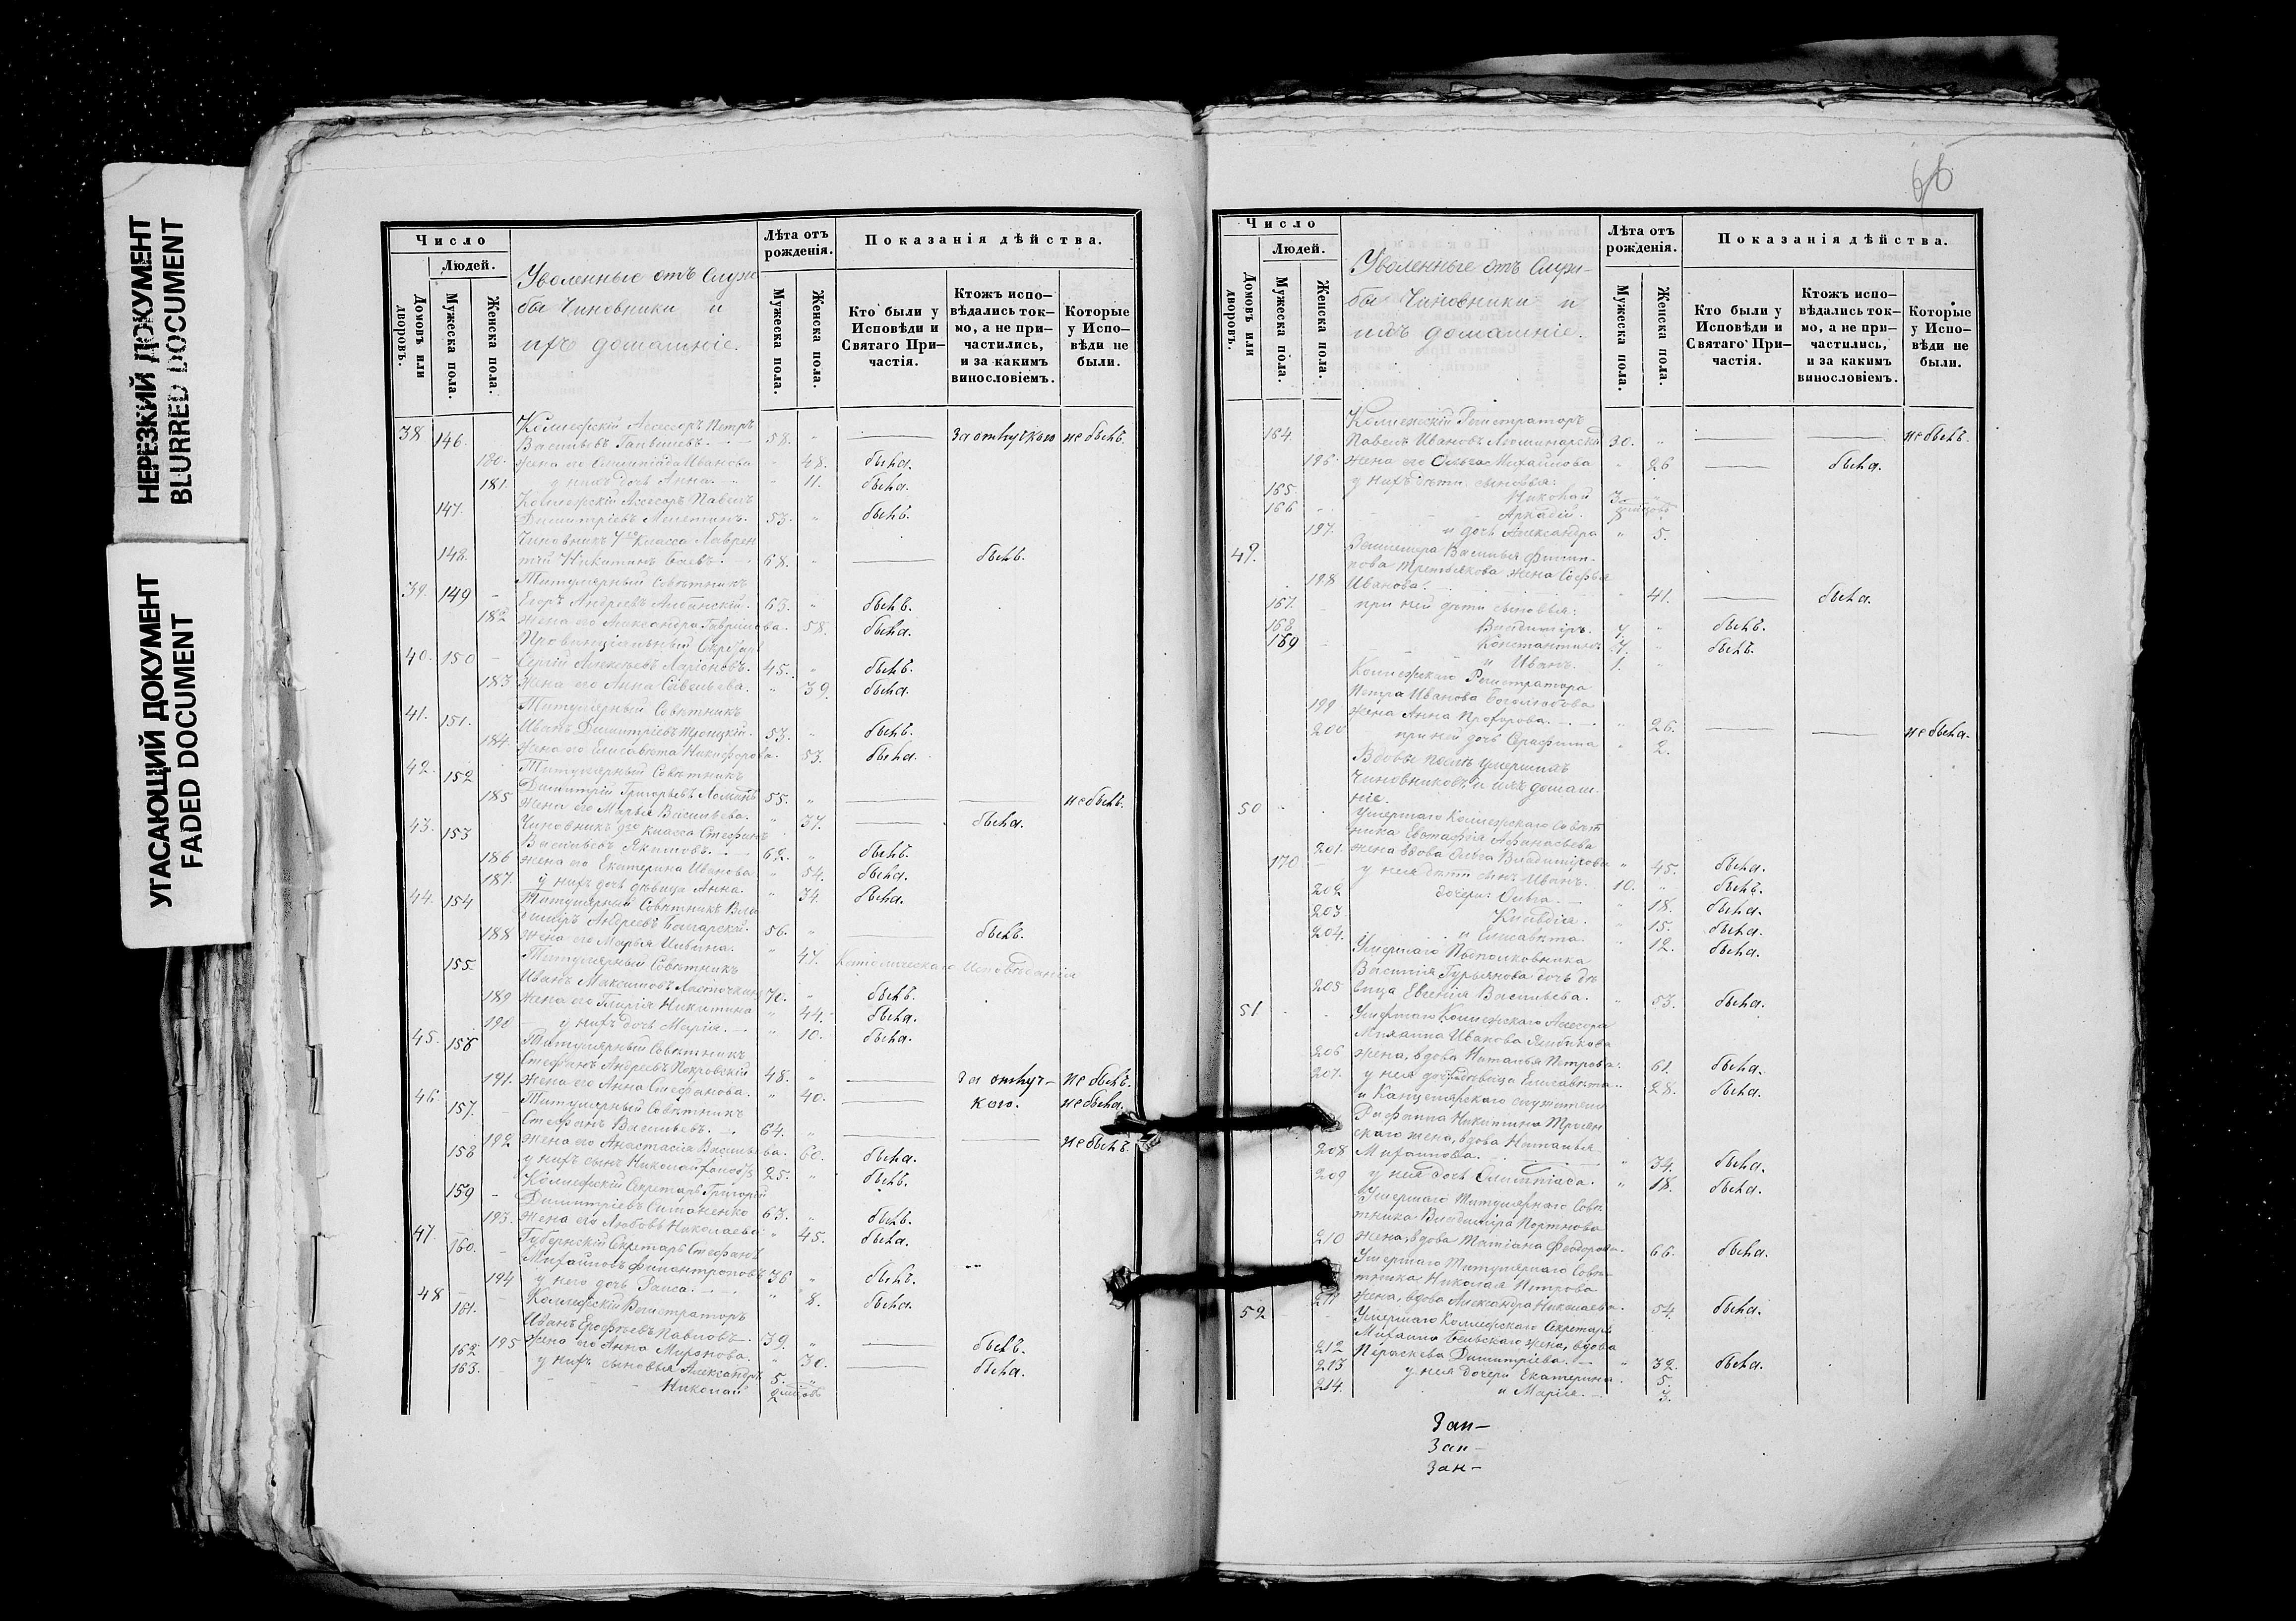 НЕРЕЗКИЙ ДОКУМЕНТ
BLURRED DOCUMENT
УГАСАЮЩИЙ ДОКУМЕНТ
FADED DOCUMENT
Число
Людей.
Домовъ или дворовъ.
Мужеска пола.
Женска пола.
Уволенные отъ служ
бы Чиновники и
ихъ домашніе.
Лѣта отъ рожденія.
Мужеска пола.
Женска пола.
Показанія дѣйства.
Кто были у Исповѣди и Святаго При–частія.
Ктожъ испо–вѣдались ток–мо, а не при–частились, и за какимъ винословіемъ.
Которые у Испо–вѣди не были.
38 146. Коллежскій Ассесоръ Петръ
Васильевъ 58. " — За отлучкою не былъ.
180. жена его Олимпіада Иванова " 48. была.
181. у нихъ дочь Анна. " 11. была.
147. Коллежскій Ассесоръ Павелъ
Димитріевъ 53. " былъ.
148. Чиновникъ 7го класса Лаврен
тій Никитинъ 68. " — былъ.
39. 149 Титулярный Совѣтникъ
Егоръ Андреевъ 65. " былъ.
182 жена его Александра Гаврилова. 58. была.
40. 150 Провинціальный Секретарь
Сергій Алексѣевъ Ларіоновъ. 45. " былъ.
183 жена его Анна Савельева. " 39. была.
41. 151. Титулярный Совѣтникъ
Иванъ Димитріевъ Троицкій. 53. " былъ.
184. жена его Елисавета Никифорова. 53. была.
42. 152 Титулярный Совѣтникъ
Димитрій Григорьевъ 55. " — — не былъ.
185 жена его Марья Васильева. " 37. — была.
43. 153 Чиновникъ 9го класса Стефанъ
Васильевъ Якимовъ. 62. " былъ.
186 жена его Екатерина Иванова " 54. была.
187. у нихъ дочь дѣвица Анна. " 34. была.
44. 154 Титулярный Совѣтникъ Вла
димiръ Андреевъ Болгарскій. 56. " — былъ.
188 жена его Марья Ильина. " 47. Католическаго Исповѣданія
155 Титулярный Совѣтникъ
Иванъ Максимовъ Ласточкинъ 70. " былъ.
189 жена его Гликерія Никитина " 44. была.
190 у нихъ дочь Марія. " 10. была.
45. 156 Титулярный Совѣтникъ
Стефанъ Андреевъ Покровскій 48. " — За отлуч– не былъ.
191. жена его Анна Стефанова. " 40. — кою. не была.
46 157. Титулярный Совѣтникъ
Стефанъ Васильевъ. 64. " — — не былъ.
192 жена его Анастасія Васильева. 60. была.
158 у нихъ сынъ Николай 25. " былъ.
159 Коллежскій Секретарь Григорій
Димитріевъ Симоненко 63. " былъ.
193. жена его Любовь Николаева " 45. была.
47. 160. Губернскій Секретарь Стефанъ
Михайловъ Филантроповъ 36 " былъ.
194 у него дочь Раиса. " 8. была.
48 161. Коллежскій Регистраторъ
Иванъ Ерофѣевъ Павловъ 39. " — былъ.
195 жена его Анна Миронова. " 30. — была.
162 у нихъ сыновья Александръ 5. "
163. Николай 2 мѣсяцовъ
Число
Людей.
Домовъ или дворовъ.
Мужеска пола.
Женска пола.
Уволенные отъ служ–
бы Чиновники и
ихъ домашніе.
Лѣта отъ рожденія.
Мужеска пола.
Женска пола.
Показанія дѣйства.
Кто были у Исповѣди и Святаго При–частія.
Ктожъ испо–вѣдались ток–мо, а не при–частились, и за какимъ винословіемъ.
Которые у Испо–вѣди не были.
164. Коллежскій Регистраторъ
Павелъ Ивановъ 30. " — — не былъ.
196. жена его Ольга Михайлова " 26 — была.
у нихъ дѣти: сыновья:
165. Николай 3 "
166 Аркадій. мѣсяцовъ
197. и дочь Александра " 5.
49. Землемѣра Василья Филип–
пова Третьякова жена Софья
198 Иванова. " 41. — была.
при ней дѣти сыновья:
167. Владиміръ. " былъ.
168 Константинъ " былъ.
169 и Иванъ. 1. "
Коллежскаго Регистратора
Петра Иванова Боголюбова
199 жена Анна Прохорова. " 26. — — не была.
200 при ней дочь Серафима " 2.
Вдовы послѣ умершихъ
Чиновниковъ и ихъ домаш–
ніе.
50 Умершаго Коллежскаго Совѣт
ника Евстафія Афанасьева
201. жена вдова Ольга Владимірова " 45. была.
170 у нея дѣти сынъ Иванъ. 10. " былъ.
202 дочери: Ольга. " 18. была.
203 Клавдія. " 15. была.
204. и Елисавета. " 12. была.
Умершаго Подполковника
Василія Гурьянова дочь дѣ
205 вица Евгенія Васильева. " 53. была.
51 Умершаго Коллежскаго Ассесора
Михаила Иванова
206 жена, вдова Наталья Петрова. 61. была.
207. у нея дочь дѣвица Елисавета. 28. была.
и Канцелярскаго служителя
Никитина
скаго жена, вдова Наталья
208 Михайлова. " 34. была.
209 у нея дочь Олимпіада. " 18. была.
Умершаго Титулярнаго Совѣ
тника Владиміра Портнова
210 жена, вдова Татіана Феодорова. 66. была.
Умершаго Титулярнаго Совѣ–
тника Николая Петрова
211 жена, вдова Александра Николаева. 54. была.
52 Умершаго Коллежскаго Секретаря
Михаила Бѣльскаго жена, вдова
212 Параскева Димитріева. " 32. была.
213 у нея дочери Екатерина. 5.
214. и Марія. 3.
Зап–
Зап–
Зап–